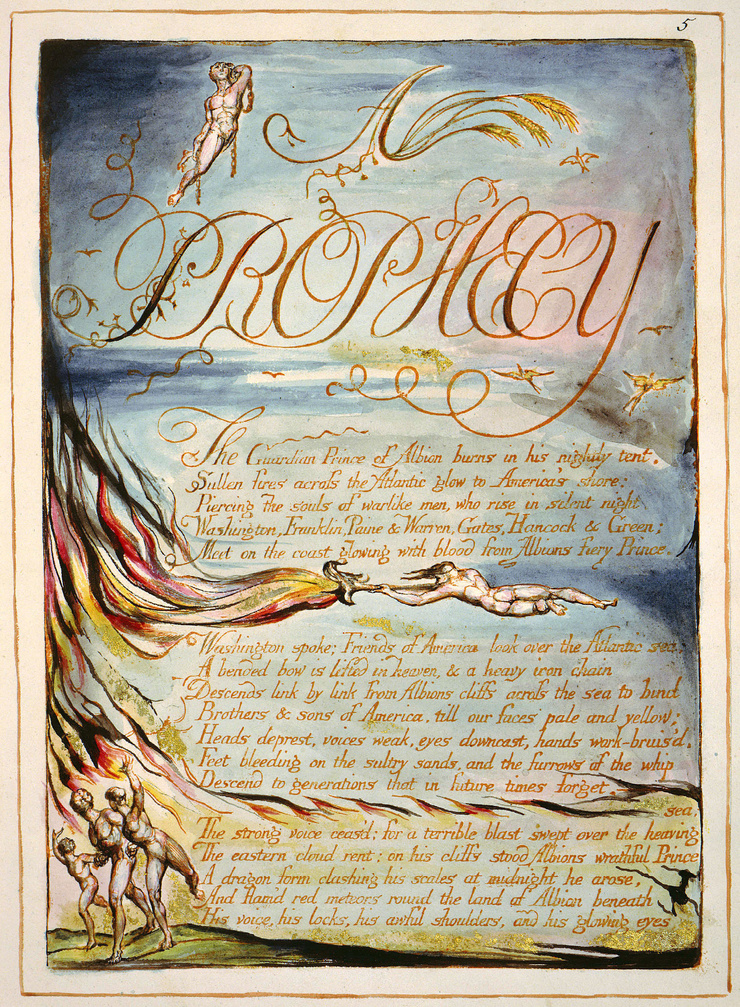 5
A
PROPHECY
The Guardian Prince of Albion burns in his nightly tent.
Sullen fires across the Atlantic glow to America's shore:
Piercing the souls of warlike men, who rise in silent night
Washington, Franklin, Paine & Warren, Gates, Hancock & Green;
Meet on the coast glowing with blood from Albions fiery Prince.
Washington spoke; Friends of America look over the Atlantic sea;
A bended bow is lifted in heaven, & a heavy iron chain
Descends link by link from Albions cliffs across the sea to bind
Brothers & sons of America, till our faces pale and yellow;
Heads deprest, voices weak, eyes downcast, hands work-bruis'd,
Feet bleeding on the sultry sands, and the furrows of the whip
Descend to generations that in future times forget.
sea;
The strong voice ceas'd; for a terrible blast swept over the heaving
The eastern cloud rent; on his cliffs stood Albions wrathful Prince
A dragon form clashing his scales at midnight he arose,
And flam'd red meteors round the land of Albion beneath
His voice, his locks, his awful shoulders, and his glowing eyes